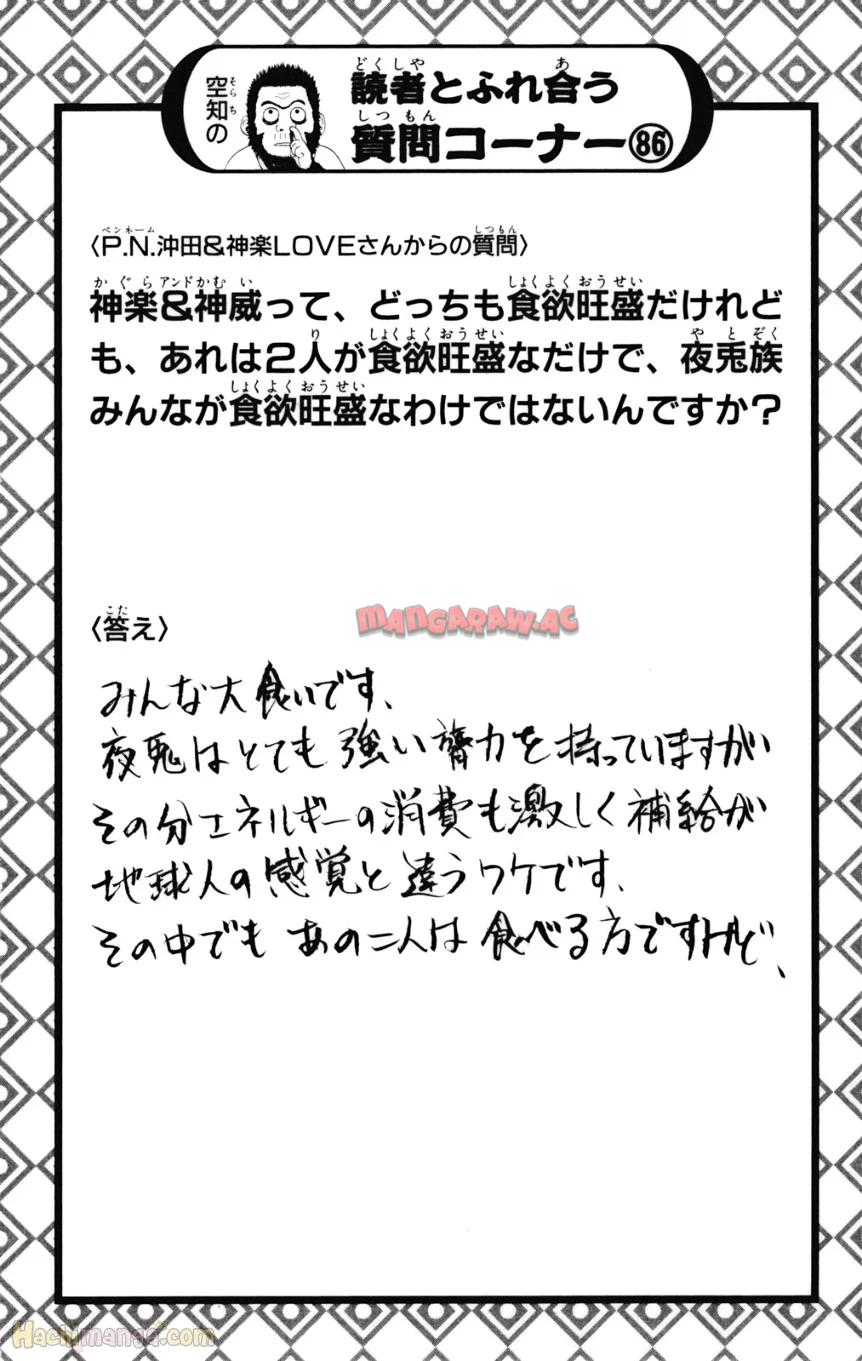 空知の
読者とふれ合う
質問コーナー86
〈P.N.沖田&神楽LOVEさんからの質問〉
神楽&神威って、どっちも食欲旺盛だけれど
も、あれは2人が食欲旺盛なだけで、夜兎族
みんなが食欲旺盛なわけではないんですか?
〈答え〉
MANGARAW.AC
みんな大食いです、
夜兎はとても強い膂力を持っていますが
その分エネルギーの消費も激しく補給が
地球人の感覚と違うワケです、
その中でもあの二人は食べる方ですけど、
Hachimanga.com